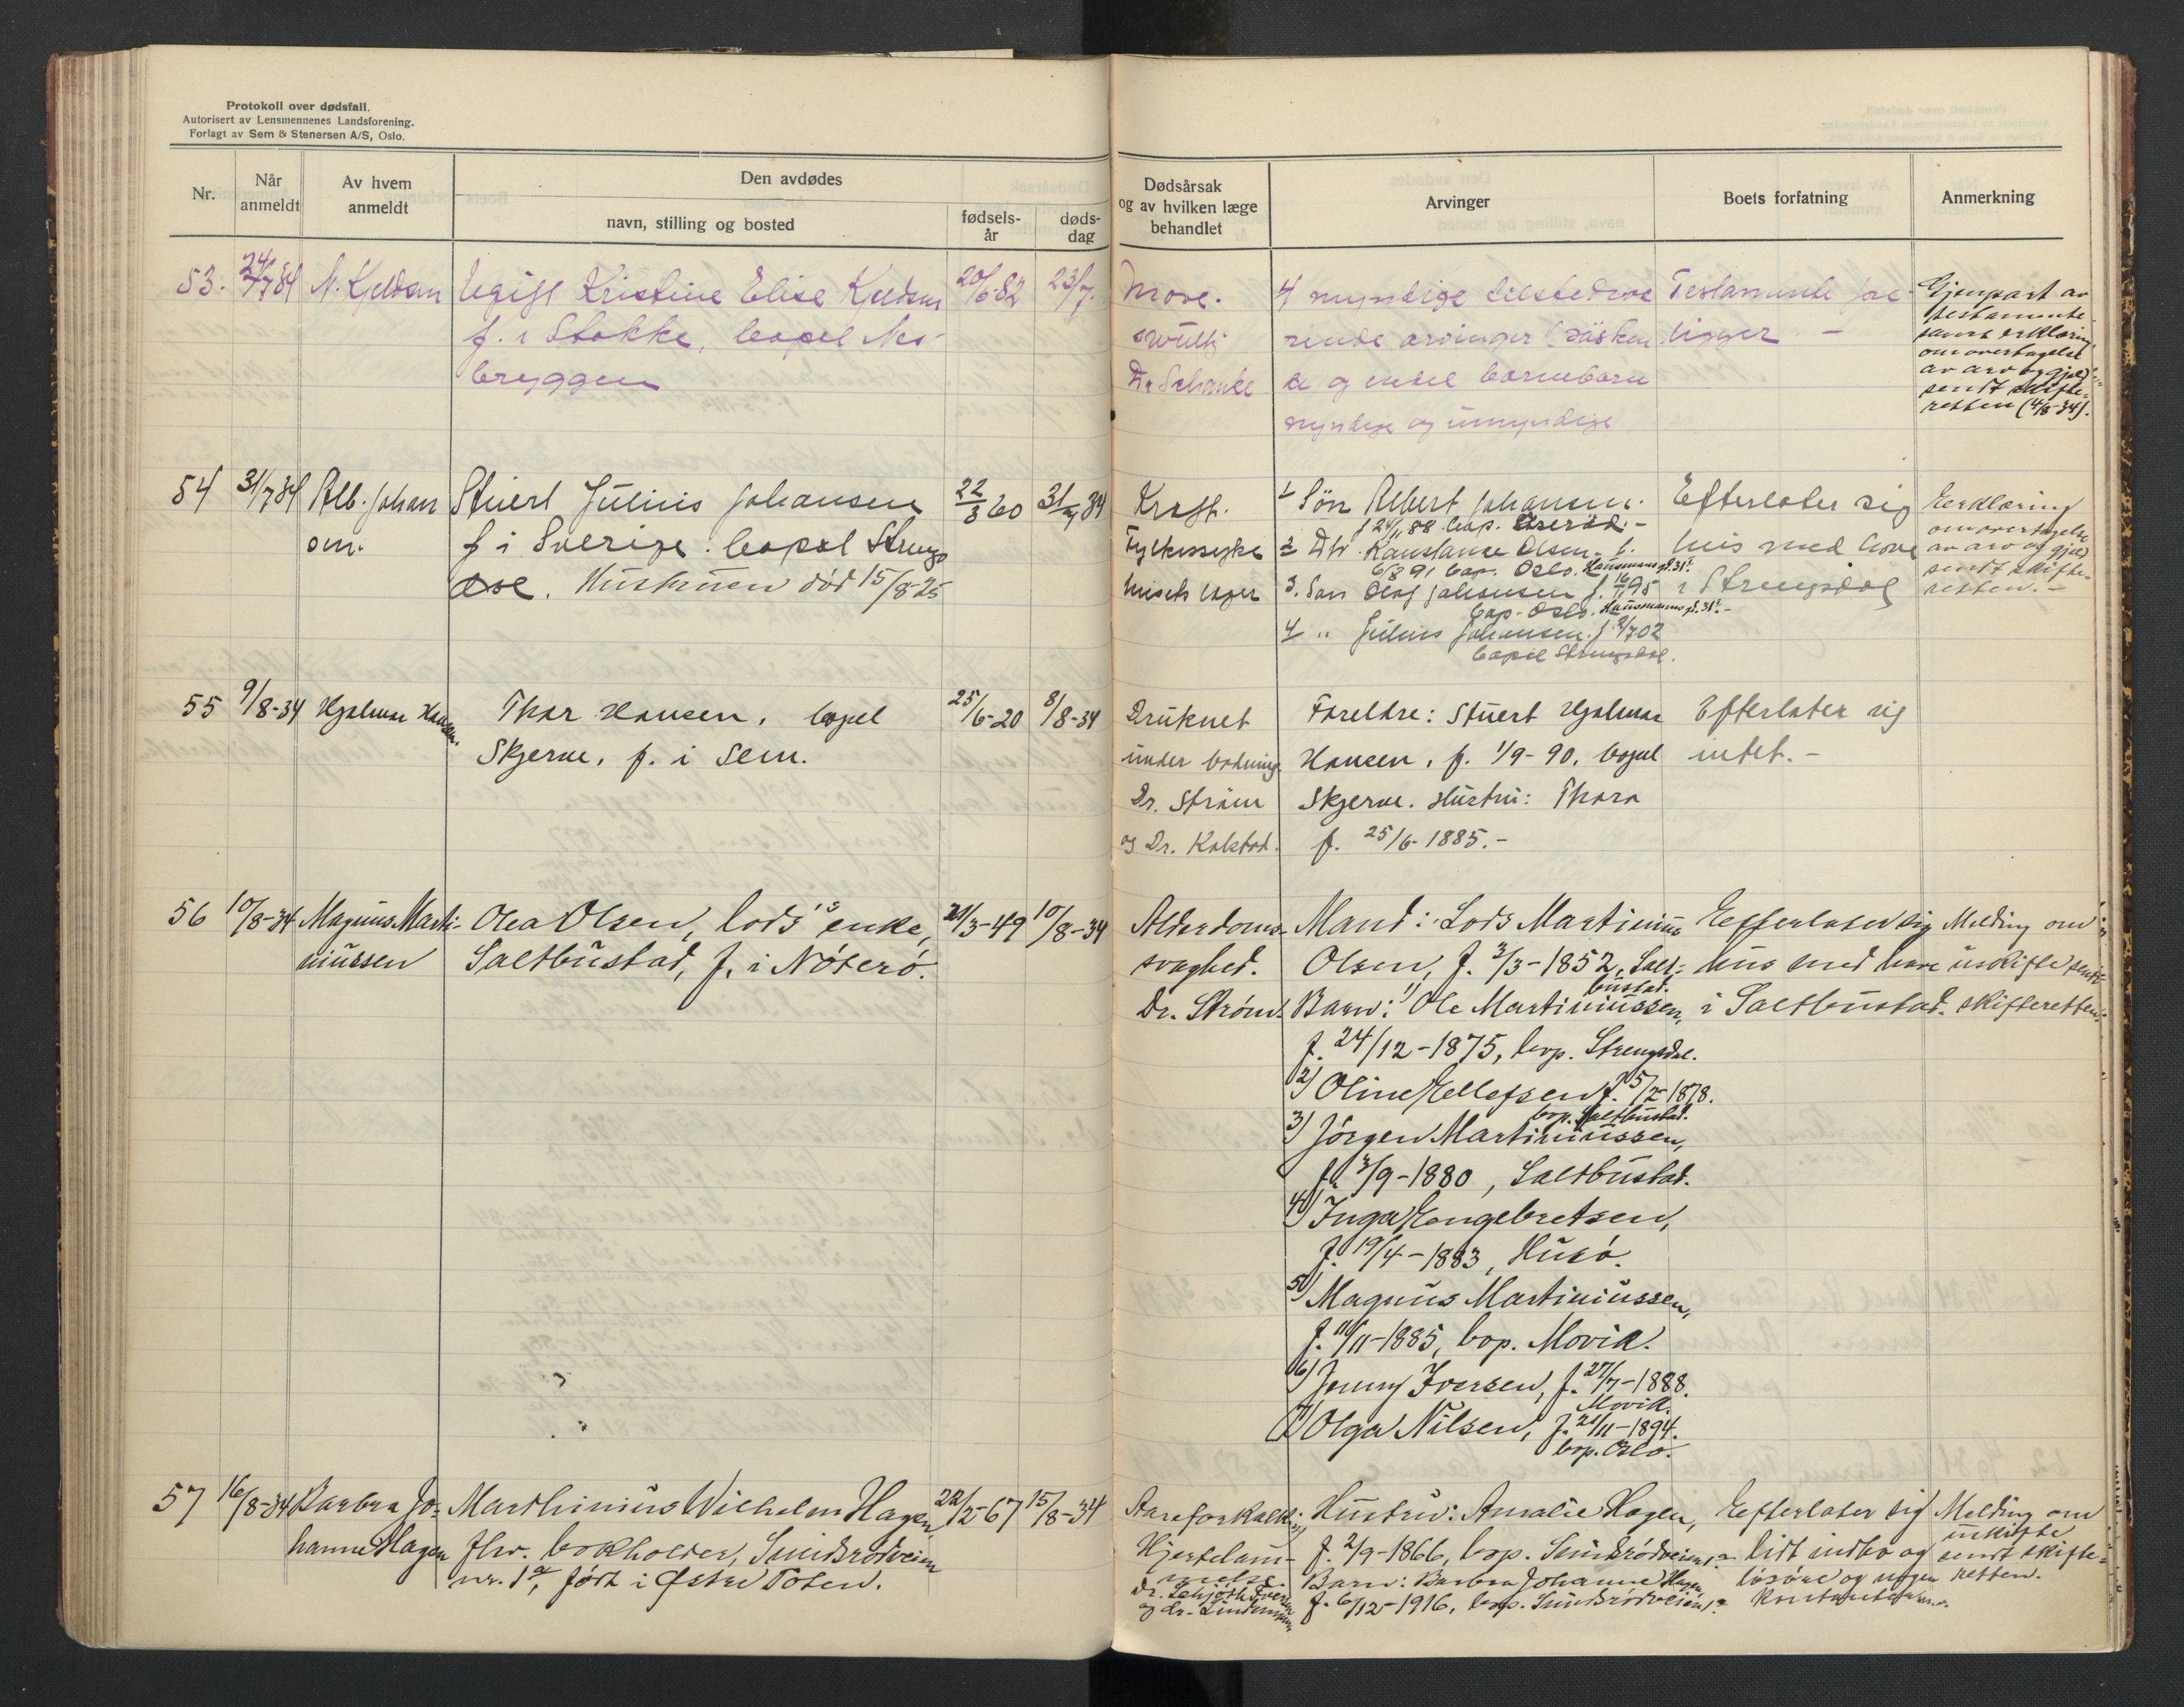 Protokoll over dødsfall.
Autorisert av Lensmennenes Landsforening.
Forlagt av Sem & Stenersen A/S, Oslo.
Nr.
Når anmeldt
Av hvem anmeldt
Den avdødes
navn, stilling og bosted
fødsels-år
døds-dag
Dødsårsak og av hvilken læge behandlet
Arvinger
Boets forfatning
Anmerkning
53. 24/7 34 N. Kjeldsen Ugift Kristine Elise Kjeldsen 20/6-82 23/7.
f. i Stokke, bopel
bryggen
Mave-
svulst
Dr Schanke
4 myndige tilstedeværende arvinger (søsken
de og endel barnebarn
myndige og umyndige
Testamente fore-
ligger. -
Gjenpart av
testamente
samt erklæring
om overtagelse
av arv og gjeld
sendt skifte-
retten (4/8-34).
54 31/7 34 Alb. Johan Stuert Julius Johansen 22/3 60 31/7 34
sen. f i Sverige. bopel Strengs
dal. Hustruen død 15/8-25
Kreft.
Fylkessyke
husets læger
1 Søn Albert Johansen.
f 24/11 88 bop.
2 Dtr. Konstance Olsen f.
6/8 91 bop. Oslo. Hausmanns gt. 31.
3. Søn Olaf Johansen f. 16/ 95
bop. Oslo. Hausmanns gt. 31. -
4 " Julius Johansen f 2/7 02
bopel Strengsdal.
Efterlater sig
hus med have
i Strengsdal
Erklæring
om overtagelse
av arv og gjeld
sendt skifte-
retten. -
55 9/8-34 Hjalmar Hansen. Thor Hansen, bopel 25/6-20 8/8-34
Skjerve, f. i Sem.
Druknet
under badning
Dr. Strøm
og Dr. Kolstad.
Foreldre: Stuert Hjalmar
Hansen, f. 1/9-90, bopel
Skjerve. Hustru: Thora
f. 25/6-1885.-
Efterlater sig
intet. -
56 10/8-34 Magnus Marti- Olea Olsen, lods's enke, 21/3-49 10/8-34
niussen Saltbustad, f. i Nøterø.
Alderdoms-
svaghed.
Dr. Strøm.
Mand: Lods Martinius
Olsen, f. 3/3-1852, Salt-
bustad.
Barn: 1) Ole Martiniussen,
f. 24/12-1875, bop. Strengsdal.
2) Oline Ellefsen f. 5/2-1878.
bop. Saltbustad.
3) Jørgen Martiniussen,
f. 3/9-1880, Saltbustad.
4) Inga Engebretsen,
f. 19/4-1883, Husø.
5) Magnus Martiniussen,
f. 11/11-1885, bop. Movik.
6) Jenny Iversen, f. 27/7-1888.
Movik.
7) Olga Nilsen, f. 21/11-1894.
bop. Oslo.
Efterlater sig
hus med have
i Saltbustad.
Melding om
uskifte sendt
skifteretten
57 16/8-34 Barbra Jo- Marthinius Wilhelm Hagen, 22/2-67 15/8-34
hanne Hagen fhv. bokholder, Smidsrødveien
nr. 1a, født i Østre Toten.
Aareforkalkning
Hjertelam-
melse.
og dr. Lindemann
Hustru: Amalie Hagen,
f. 2/9-1866, bop. Smidsrødveien 1a
Barn: Barbra Johanne Hagen,
f. 6/12-1916, bop. Smidsrødveien 1a
Efterlater sig
lidt indbo og
løsøre og nogen
kontanter.
Melding om
uskifte
sendt skifte-
retten.